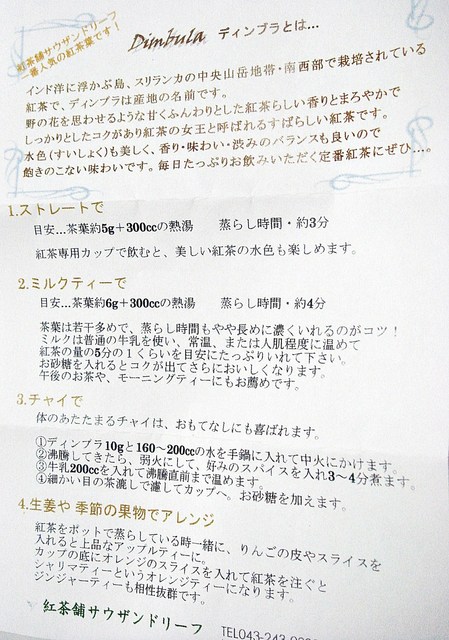 紅茶舗サウザンドリーフ
一番人気の紅茶葉です!
Dimbula ディンブラとは...
インド洋に浮かぶ島、スリランカの中央山岳地帯・南西部で栽培されている
紅茶で、ディンブラは産地の名前です。
野の花を思わせるような甘くふんわりとした紅茶らしい香りとまろやかで
しっかりとしたコクがあり紅茶の女王と呼ばれるすばらしい紅茶です。
水色(すいしょく)も美しく、香り・味わい・渋みのバランスも良いので
飽きのこない味わいです。毎日たっぷりお飲みいただく定番紅茶にぜひ...。
1.ストレートで
目安...茶葉約5g+300ccの熱湯 蒸らし時間・約3分
紅茶専用カップで飲むと、美しい紅茶の水色も楽しめます。
2.ミルクティーで
目安...茶葉約6g+300ccの熱湯 蒸らし時間・約4分
茶葉は若干多めで、蒸らし時間もやや長めに濃くいれるのがコツ!
ミルクは普通の牛乳を使い、常温、または人肌程度に温めて
紅茶の量の5分の1くらいを目安にたっぷりいれて下さい。
お砂糖を入れるとコクが出てさらにおいしくなります。
午後のお茶や、モーニングティーにもお薦めです。
3.チャイで
体のあたたまるチャイは、おもてなしにも喜ばれます。
①ディンブラ10gと160~200ccの水を手鍋に入れて中火にかけます。
②沸騰してきたら、弱火にして、好みのスパイスを入れ3~4分煮ます。
③牛乳200ccを入れて沸騰直前まで温めます。
④細かい目の茶漉しで濾してカップへ。お砂糖を加えます。
4.生姜や 季節の果物でアレンジ
紅茶をポットで蒸らしている時一緒に、りんごの皮やスライスを
入れると上品なアップルティーに。
カップの底にオレンジのスライスを入れて紅茶を注ぐと
シャリマティーというオレンジティーになります。
ジンジャーティーも相性抜群です。
紅茶舗サウザンドリーフ TEL043-243-